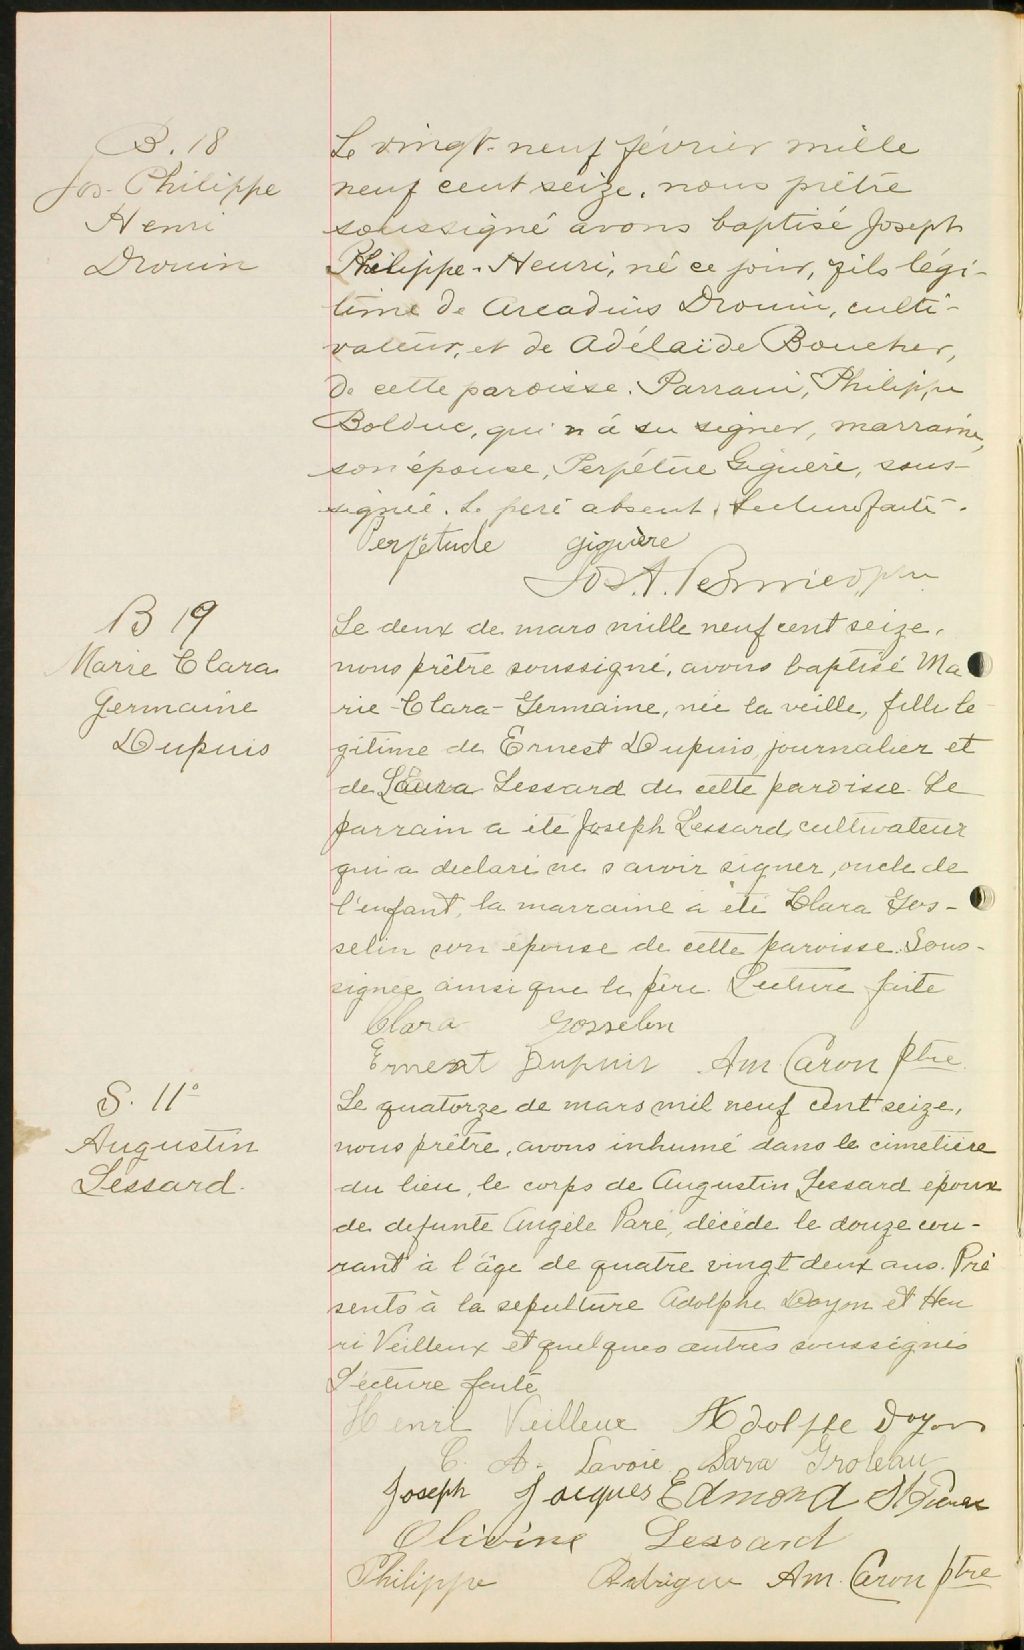 B. 18
Jos-Philippe
Henri
Drouin
Le vingt-neuf février mille
neuf cent seize, nous prêtre
soussigné avons baptisé Joseph
Philippe-Henri, né ce jour, fils légi-
time de Arcadius Drouin, culti-
vateur, et de Adélaïde Boucher,
de cette paroisse. Parrain, Philippe
Bolduc, qui n'a su signer, marraine,
son épouse, Perpétue Giguère, sous-
signée. Le père absent. Lecture faite.
Perpétude giguère
Jos. A. ptre
B 19
Marie Clara
Germaine
Dupuis
Le deux de mars mille neuf cent seize,
nous prêtre soussigné, avons baptisé Ma
rie-Clara-Germaine, née la veille, fille lé
gitime de Ernest Dupuis, journalier et
de Laura Lessard de cette paroisse. Le
parrain a été Joseph Lessard, cultivateur
qui a declaré ne savoir signer, oncle de
l'enfant, la marraine a été Clara Gos-
selin son épouse de cette paroisse. Sous-
signée ainsi que le père. Lecture faite
Clara Gosselin
Ernest Dupuis Am. Caron ptre
S. 11°
Augustin
Lessard.
Le quatorze de mars mil neuf cent seize,
nous prêtre, avons inhumé dans le cimetière
du lieu, le corps de Augustin Lessard époux
de defunte Angèle Paré, décédé le douze cou-
rant à l'âge de quatre vingt deux ans. Pré
sents à la sepulture Adolphe Doyon et Hen
ri Veilleux et quelques autres soussignés
Lecture faite
Henri Veilleux Adolphe Doyon
C. A. Lavoie Sara Groleau
Joseph Jacques Edmond St Pierre
Olivine Lessard
Philippe Rodrigue Am. Caron ptre